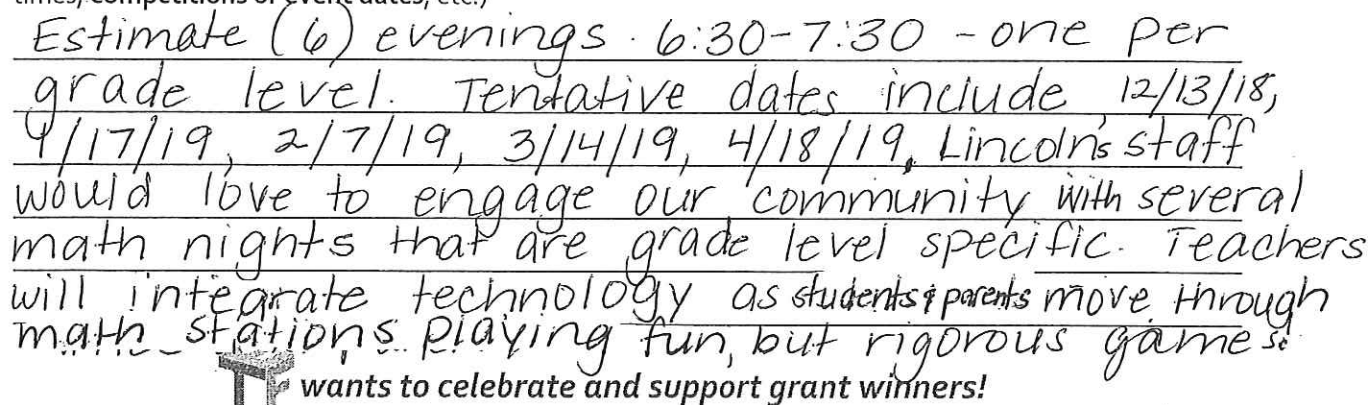 times, competitions or event dates, etc.)
Estimate (6) evenings · 6:30-7:30 - one per
grade level. Tentative dates include 12/13/18,
1/17/19, 2/7/19, 3/14/19, 4/18/19. Lincoln's staff
would love to engage our community with several
math nights that are grade level specific. Teachers
will integrate technology as students & parents move through
math stations playing fun, but rigorous games.
wants to celebrate and support grant winners!